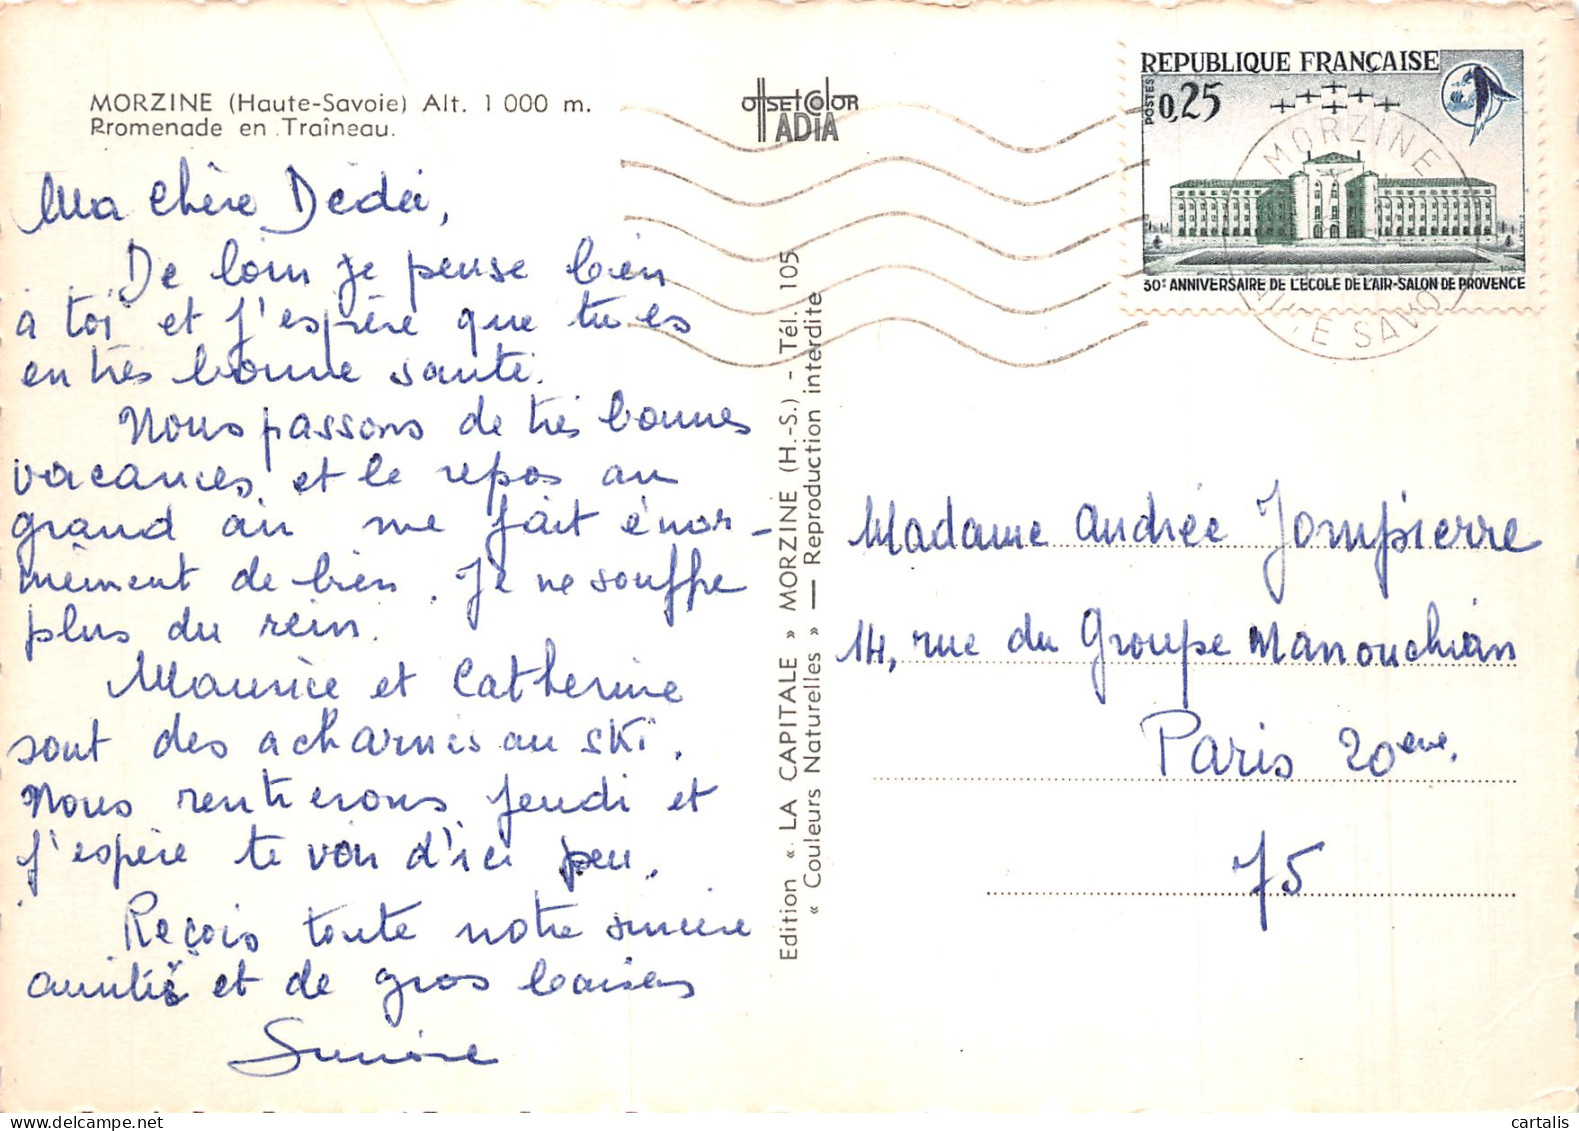 MORZINE (Haute-Savoie) Alt. 1 000 m.
Promenade en Traîneau.
OFFSET COLOR
ADIA
REPUBLIQUE FRANÇAISE
POSTES
0,25
30e ANNIVERSAIRE DE L'ECOLE DE L'AIR-SALON DE PROVENCE
MORZINE
HAUTE SAVOIE
Ma chère Dédée,
De loin je pense bien
à toi et j'espère que tu es
en très bonne santé.
Nous passons de très bonnes
vacances et le repos au
grand air me fait énor-
mément de bien. Je ne souffre
plus du rein.
Maurice et Catherine
sont des acharnés au ski.
Nous rentrerons jeudi et
j'espère te voir d'ici peu.
Reçois toute notre sincère
amitié et de gros baisers
Simone
Edition « LA CAPITALE » MORZINE (H.-S.) - Tél. 105
« Couleurs Naturelles » — Reproduction interdite
Madame Andrée Jompierre
14, rue du Groupe Manouchian
Paris 20ème.
75